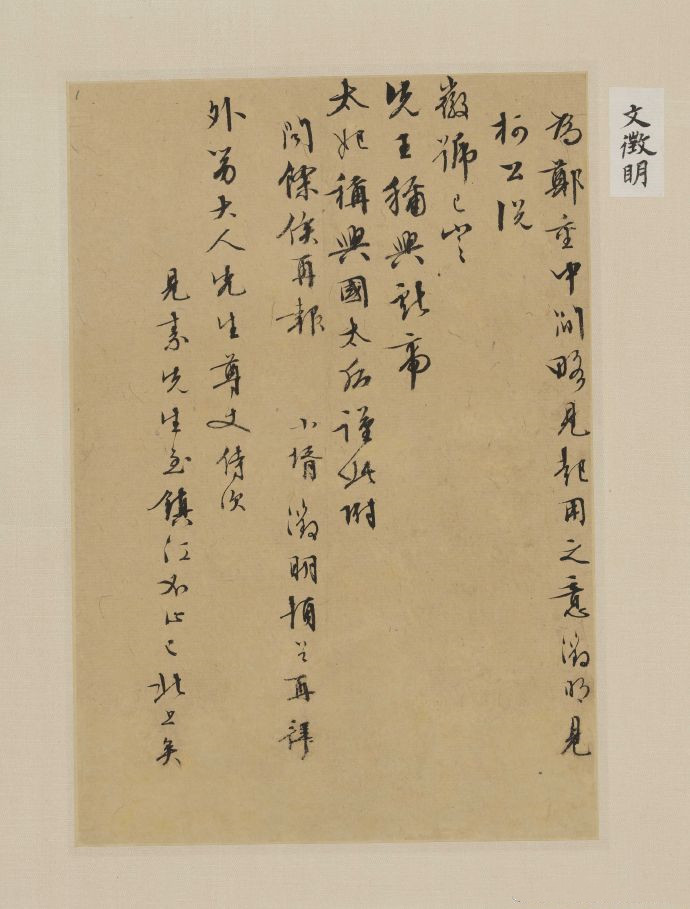 文徵明
為鄭重中間略見起用之意徵明見
柯公説
徽號已定
先王稱興獻帝
太妃稱興國太后謹此附
聞餘俟再報 小壻徵明頓首再拜
外舅大人先生尊丈侍次
見素先生至鎮江不止已北上矣